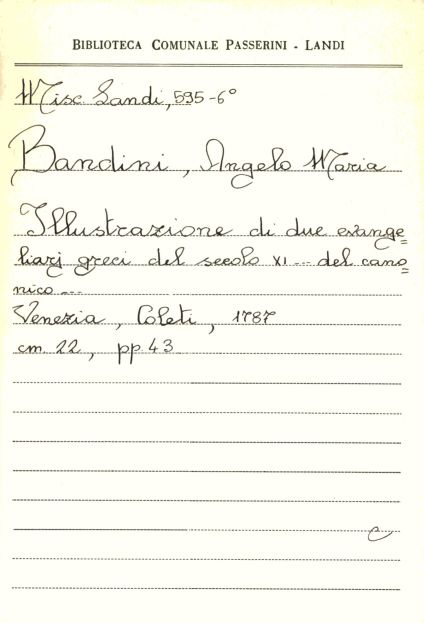 BIBLIOTECA COMUNALE PASSERINI - LANDI
Misc. Landi, 595-6°
Bandini, Angelo Maria
Illustrazione di due evange=
liarj greci del secolo XI ... del cano=
nico ...
Venezia, Coleti, 1787
cm. 22, pp 43
C